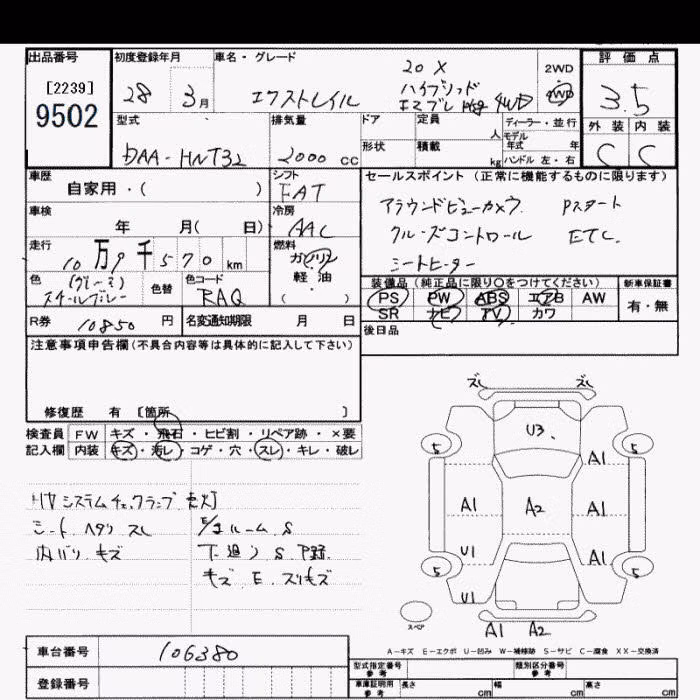 出品番号
[2239]
9502
初度登録年月 車名・グレード
28 3月
エクストレイル
20 X
ハイブリッド
エマブレ Pkg 4WD
2WD
4WD
評価点
3.5
外装 内装
C C
型式
DAA-HNT32
排気量
2000 cc
ドア 定員 人
形状 積載 kg
ディーラー・並行
モデル年式 年
ハンドル 左・右
車歴
自家用・( )
シフト
FAT
車検
年 月( 日)
冷房
AAC
走行
10万9千570km
燃料
ガソリン
軽・油
( )
色 (グレー)
スチールブルー
色替
色コード
RAQ
R券 10850円
名変通知期限 月 日
セールスポイント(正常に機能するものに限ります)
アラウンドビューカメラ Pスタート
クルーズコントロール ETC.
シートヒーター
装備品(純正品に限り○をつけてください)
PS PW ABS エアB AW
SR ナビ TV カワ
新車保証書
有・無
後日品
注意事項申告欄(不具合内容等は具体的に記入して下さい)
修復歴 有 [箇所 ]
検査員 FW キズ・飛石・ヒビ割・リペア跡・×要
記入欄 内装 キズ・汚レ・コゲ・穴・スレ・キレ・破レ
HVシステムチェックランプ 点灯
シート ヘタリ スレ
内バリ キズ
E/gルーム S
下廻り S 下部
キズ E. スリキズ
ズレ ズレ
U3
5 5
A1
A1 A2 A1
U1 A1
5 5
U1
A1 A2
スペア
A-キズ E-エクボ U-凹み W-補修跡 S-サビ C-腐食 XX-交換済
車台番号 106380
登録番号
型式指定番号 参考
類別区分番号 参考
車庫証明用 参考 長さ cm 幅 cm 高さ cm